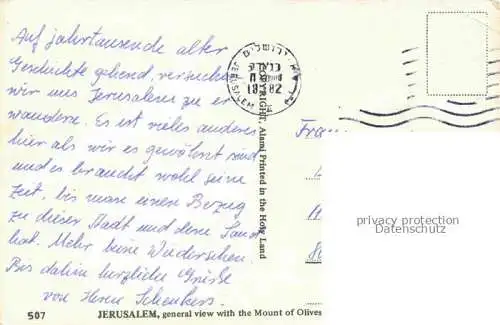 Auf jahrtausende alter
Geschichte gehend, versuchen
wir uns Jerusalem zu er
wandern. Es ist vieles anderes
hier als wir es gewöhnt sind
und es braucht wohl seine
Zeit, bis man einen Bezug
zu dieser Stadt und dem Land
hat. Mehr beim Wiedersehen.
Bis dahin herzliche Grüße
von Ihren Schenkers.
507
JERUSALEM, general view with the Mount of Olives
COPYRIGHT, Alami Printed in the Holy Land
ירושלים
JERUSALEM
privacy protection
Datenschutz